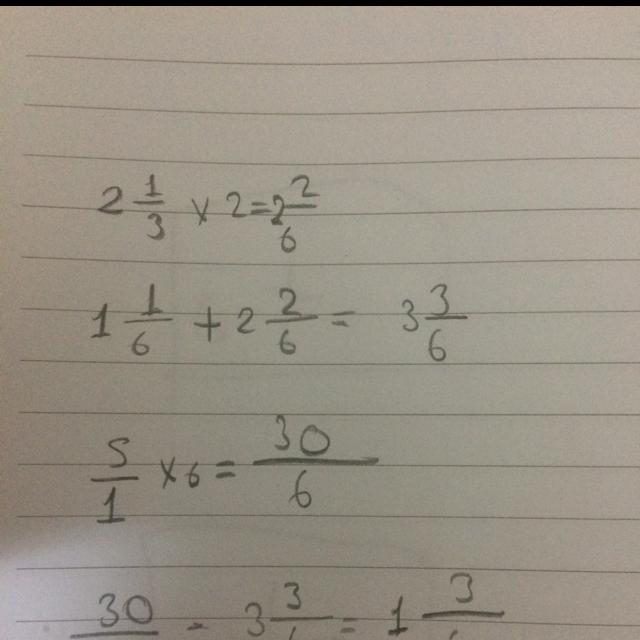 2 1/3 x 2 = 2 2/6
1 1/6 + 2 2/6 = 3 3/6
5/1 x 6 = 30/6
30 - 3 3 = 1 3